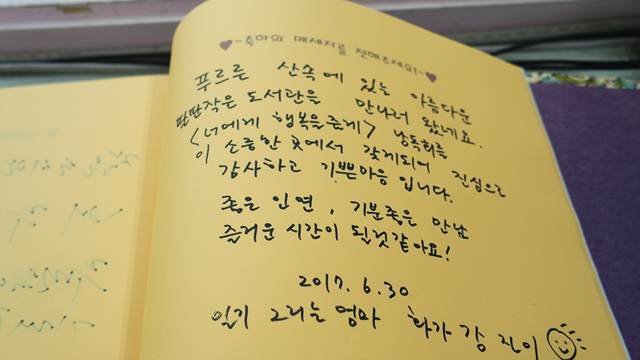 ♥-축하의 메세지를 전해주세요!-♥
푸르른 산속에 있는 아름다운
딴딴작은 도서관을 만나러 왔네요.
<너에게 행복을줄게> 낭독회를
이 소중한 곳에서 갖게되어 진심으로
감사하고 기쁜마음 입니다.
좋은 인연, 기분좋은 만남
즐거운 시간이 될것같아요!
2017. 6. 30
일기 그리는 엄마 화가 강진이